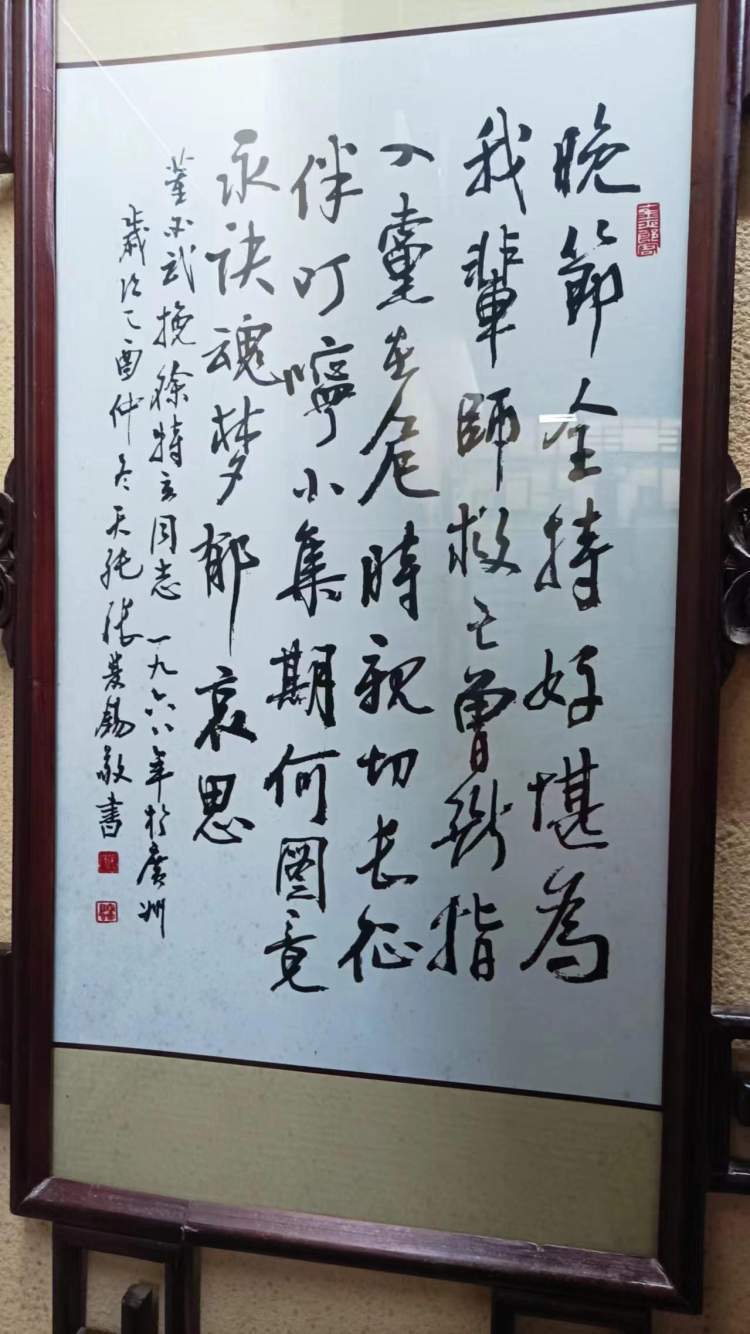 晚節全持好堪為
我輩師救亡曾断指
入黨在危時親切长征
伴叮嚀小集期何圖竟
永诀魂梦郁哀思
董必武挽徐特立同志一九六八年於廣州
歲次乙酉仲冬天張錫敬書